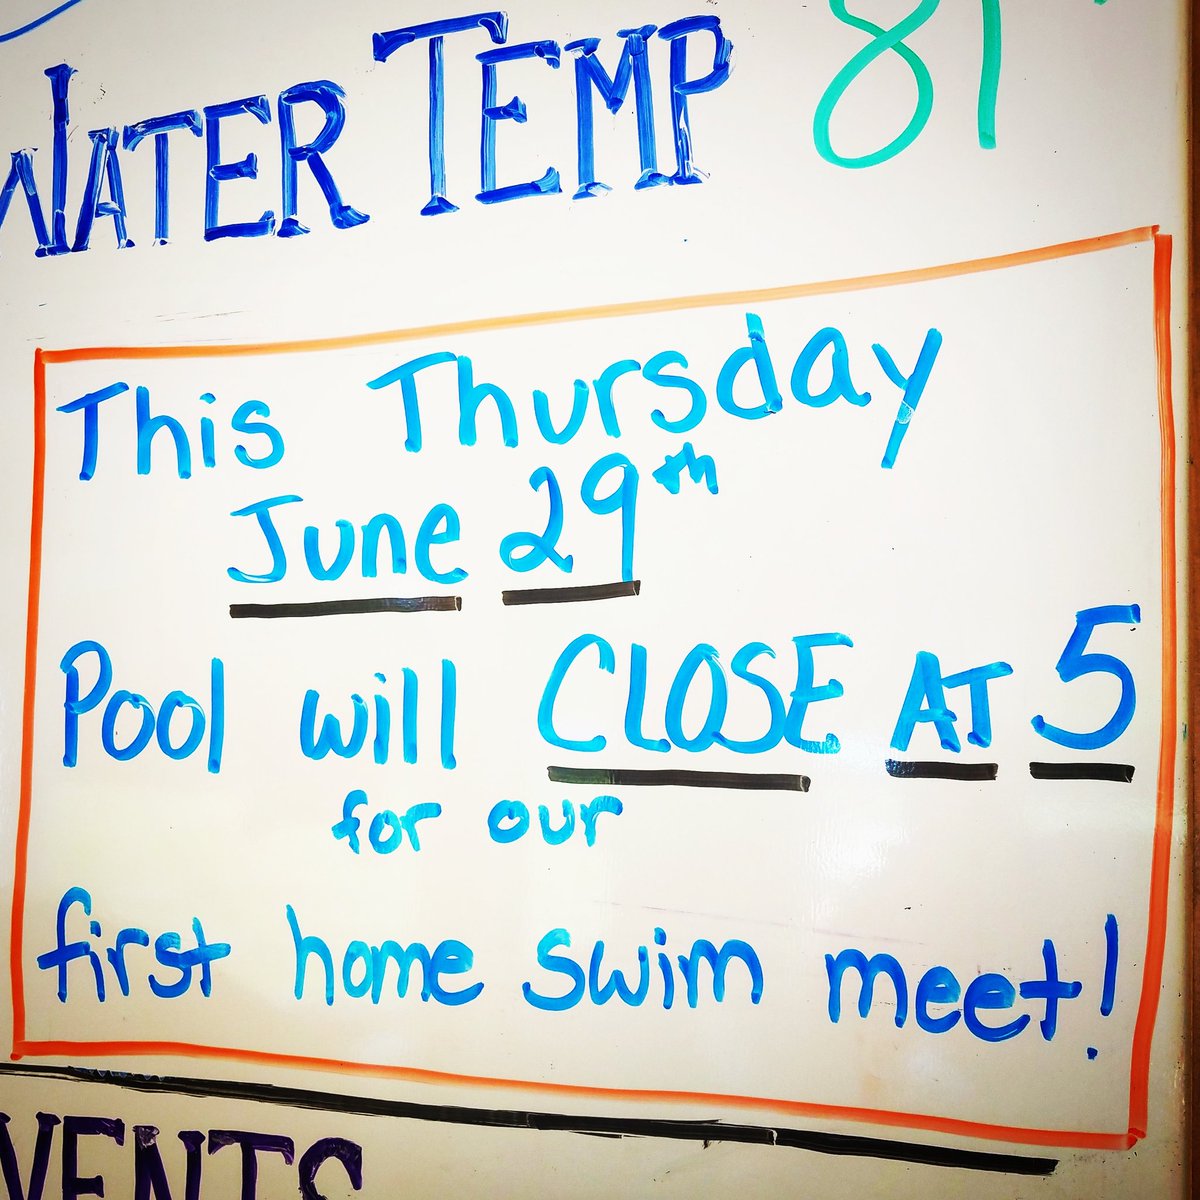 WATER TEMP 81
This Thursday
June 29th
Pool will CLOSE AT 5
for our
first home swim meet!
VENTS